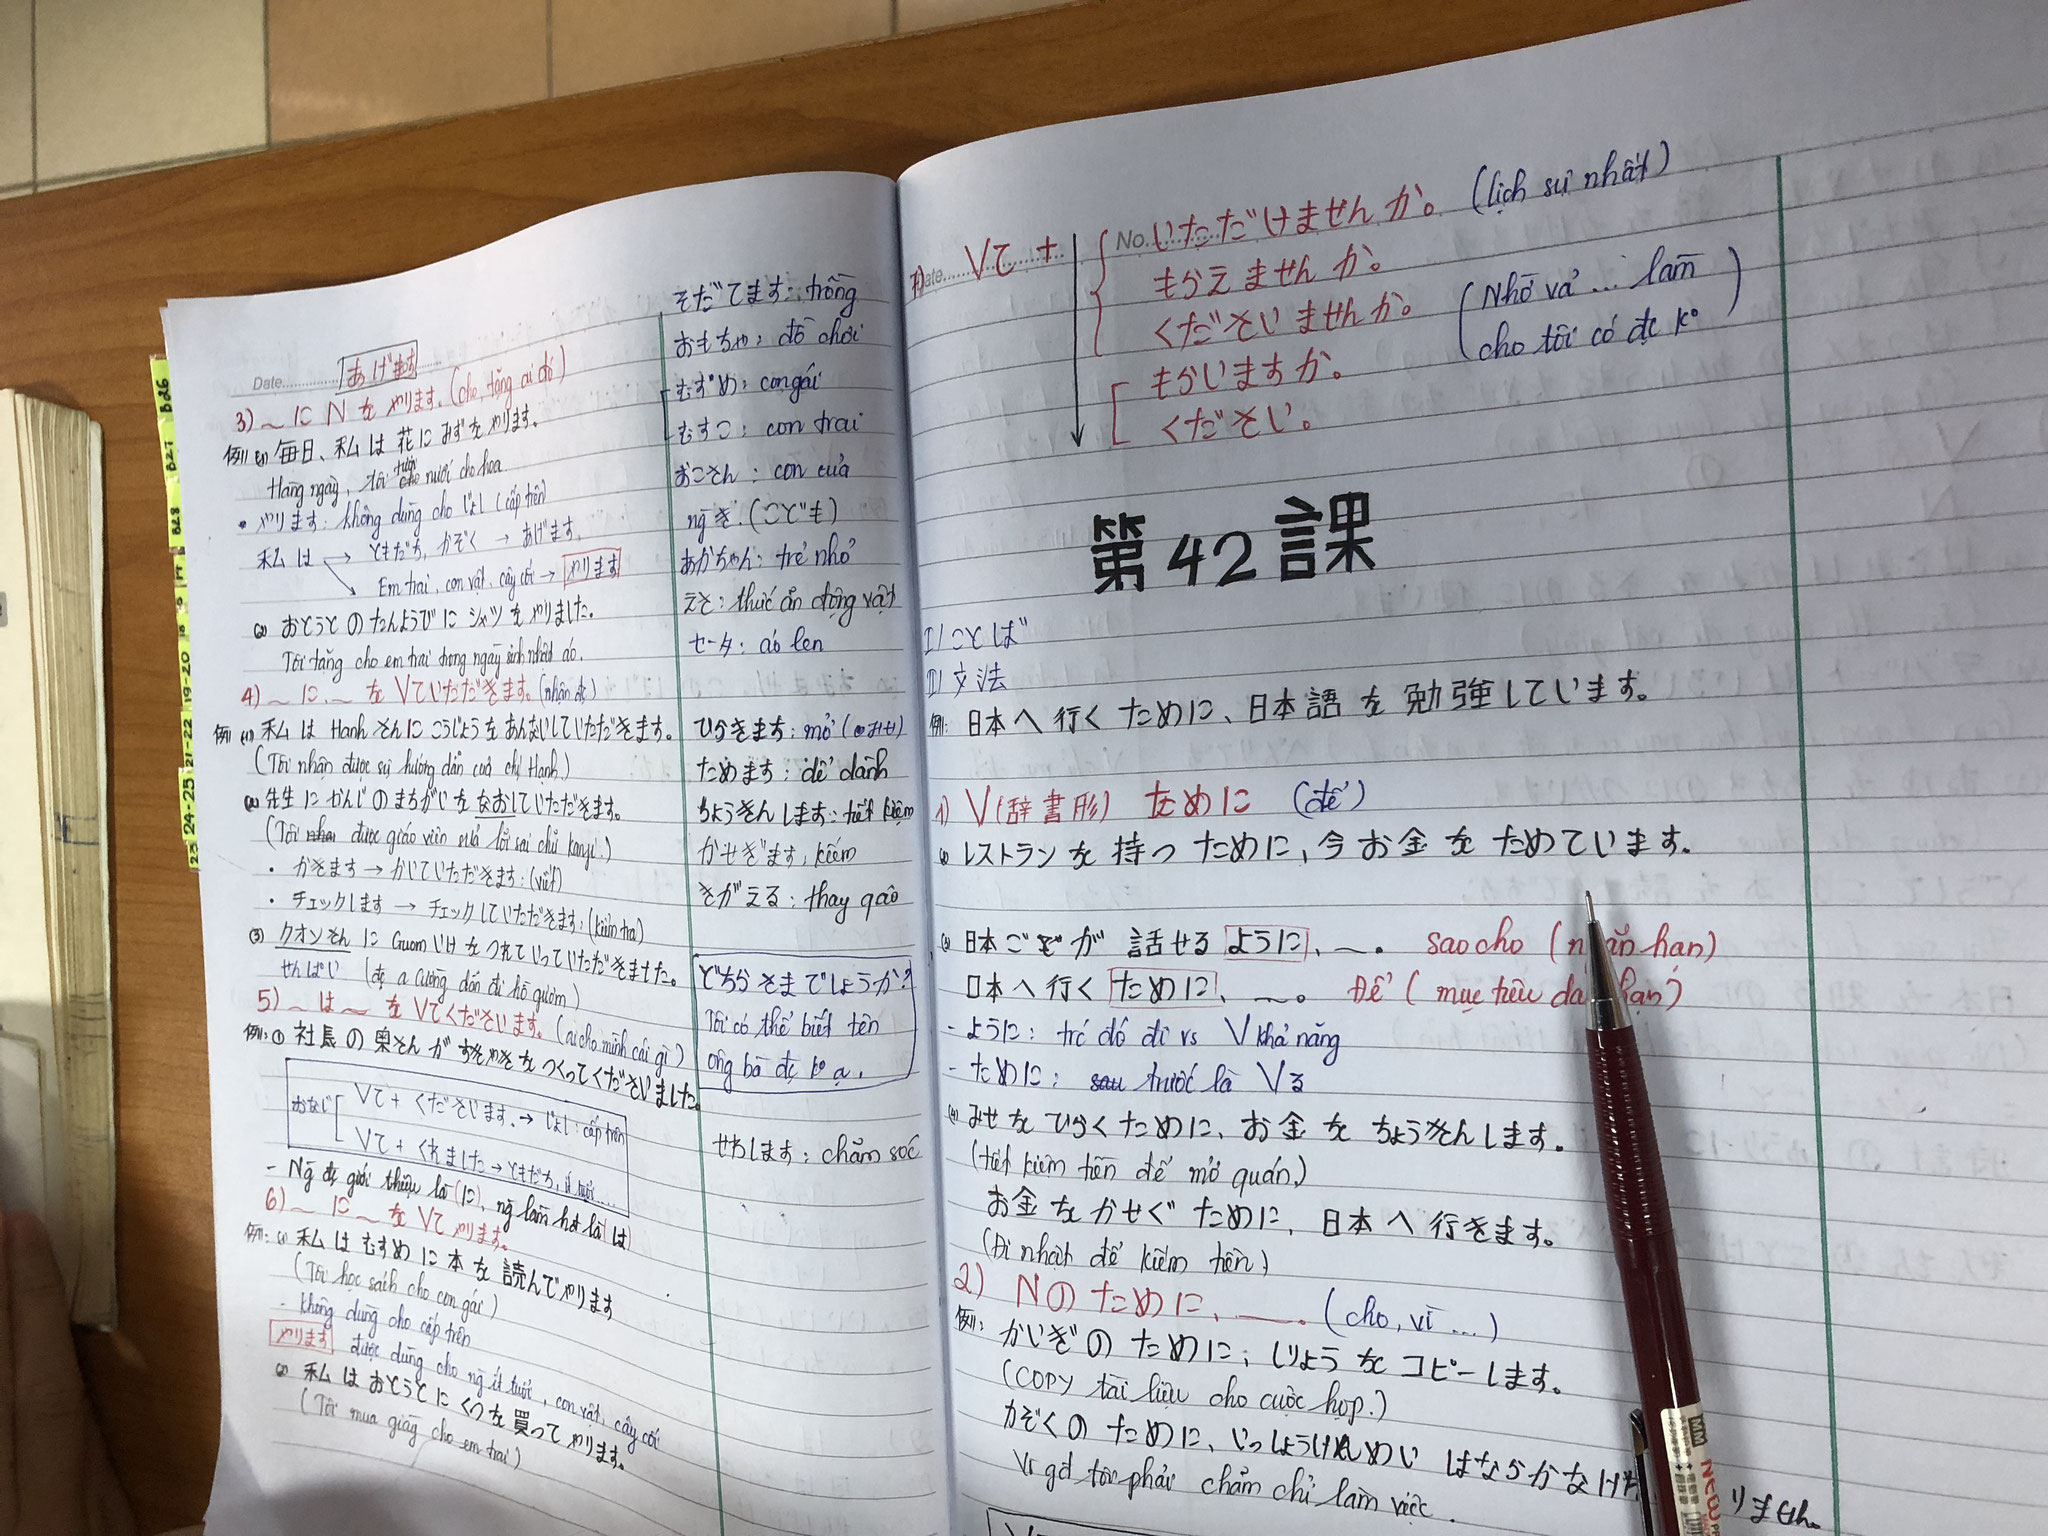 Date
あげます
3) ～に N を やります。(cho, tặng ai đó)
例: (1) 毎日、私は花にみずをやります。
Hàng ngày, tôi tưới nước cho hoa
• やります: không dùng cho じょし (cấp trên)
私は → ともだち, かぞく → あげます。
Em trai, con vật, cây cối → やります
(2) おとうとのたんようびに シャツを やりました。
Tôi tặng cho em trai trong ngày sinh nhật áo.
4) ～に、～を Vていただきます。(nhận đc)
例 (1) 私は Hanh さんにこうじょうをあんないしていただきます。
(Tôi nhận được sự hướng dẫn của chị Hạnh.)
(2) 先生にかんじのまちがいをなおしていただきます。
(Tôi được giáo viên sửa lỗi sai chữ kanji.)
• かきます → かいていただきます: (viết)
• チェックします → チェックしていただきます: (kiểm tra)
(3) クオンさんに Guom じけをつれていっていただきました。
せんぱい (đc a Cường dẫn đi hồ gươm)
5) ～は～を Vてくださいます。(ai cho mình cái gì)
例: ① 社長の奥さんが すきやきを つくってくださいました。
おなじ
Vて+ くださいます. → じょし: cấp trên
Vて+ くれました → ともだち, ít tuổi.....
- Ng đc giới thiệu là (に), ng làm hđ là は
6) ～に～を Vて やります。
例: (1) 私は むすめに 本を 読んでやります
(Tôi đọc sách cho con gái)
- không dùng cho cấp trên
やります được dùng cho ng ít tuổi, con vật, cây cối
(2) 私はおとうとに くつを買って やります。
(Tôi mua giày cho em trai)
そだてます: trồng
おもちゃ: đồ chơi
むすめ: con gái
むすこ: con trai
おこさん: con của
ng ≠. (こども)
あかちゃん: trẻ nhỏ
えさ: thức ăn động vật
セータ: áo len
ひらきます: mở (みせ)
ためます: để dành
ちょうきんします: tiết kiệm
かせぎます: kiếm
きがえる: thay quần áo
どちらさまでしょうか?
Tôi có thể biết tên
ông bà đc ko ạ.
せわします: chăm sóc
Date No.
7) Vて + いただけませんか。(lịch sự nhất)
もらえませんか。
くださいませんか。(Nhờ vả ... làm
cho tôi có đc ko)
もらいますか。
ください。
第42課
I/ ことば
II/ 文法
例: 日本へ行くために、日本語を勉強しています。
1) V(辞書形) ために (để)
(1) レストランを持つために、今お金をためています。
(2) 日本ごが話せるように、～。 sao cho (ngắn hạn)
日本へ行くために、～。 Để (mục tiêu dài hạn)
- ように: trc đó đi vs V khả năng
- ために: trước là Vる
みせをひらくために、お金をちょうきんします。
(tiết kiệm tiền để mở quán)
お金をかせぐために、日本へ行きます。
(Đi nhật để kiếm tiền)
2) Nのために、___。(cho, vì ...)
例: かいぎのために、しりょうをコピーします。
(COPY tài liệu cho cuộc họp.)
かぞくのために、いっしょうけんめい はたらかなけ
りません。
Vì gđ tôi phải chăm chỉ làm việc.